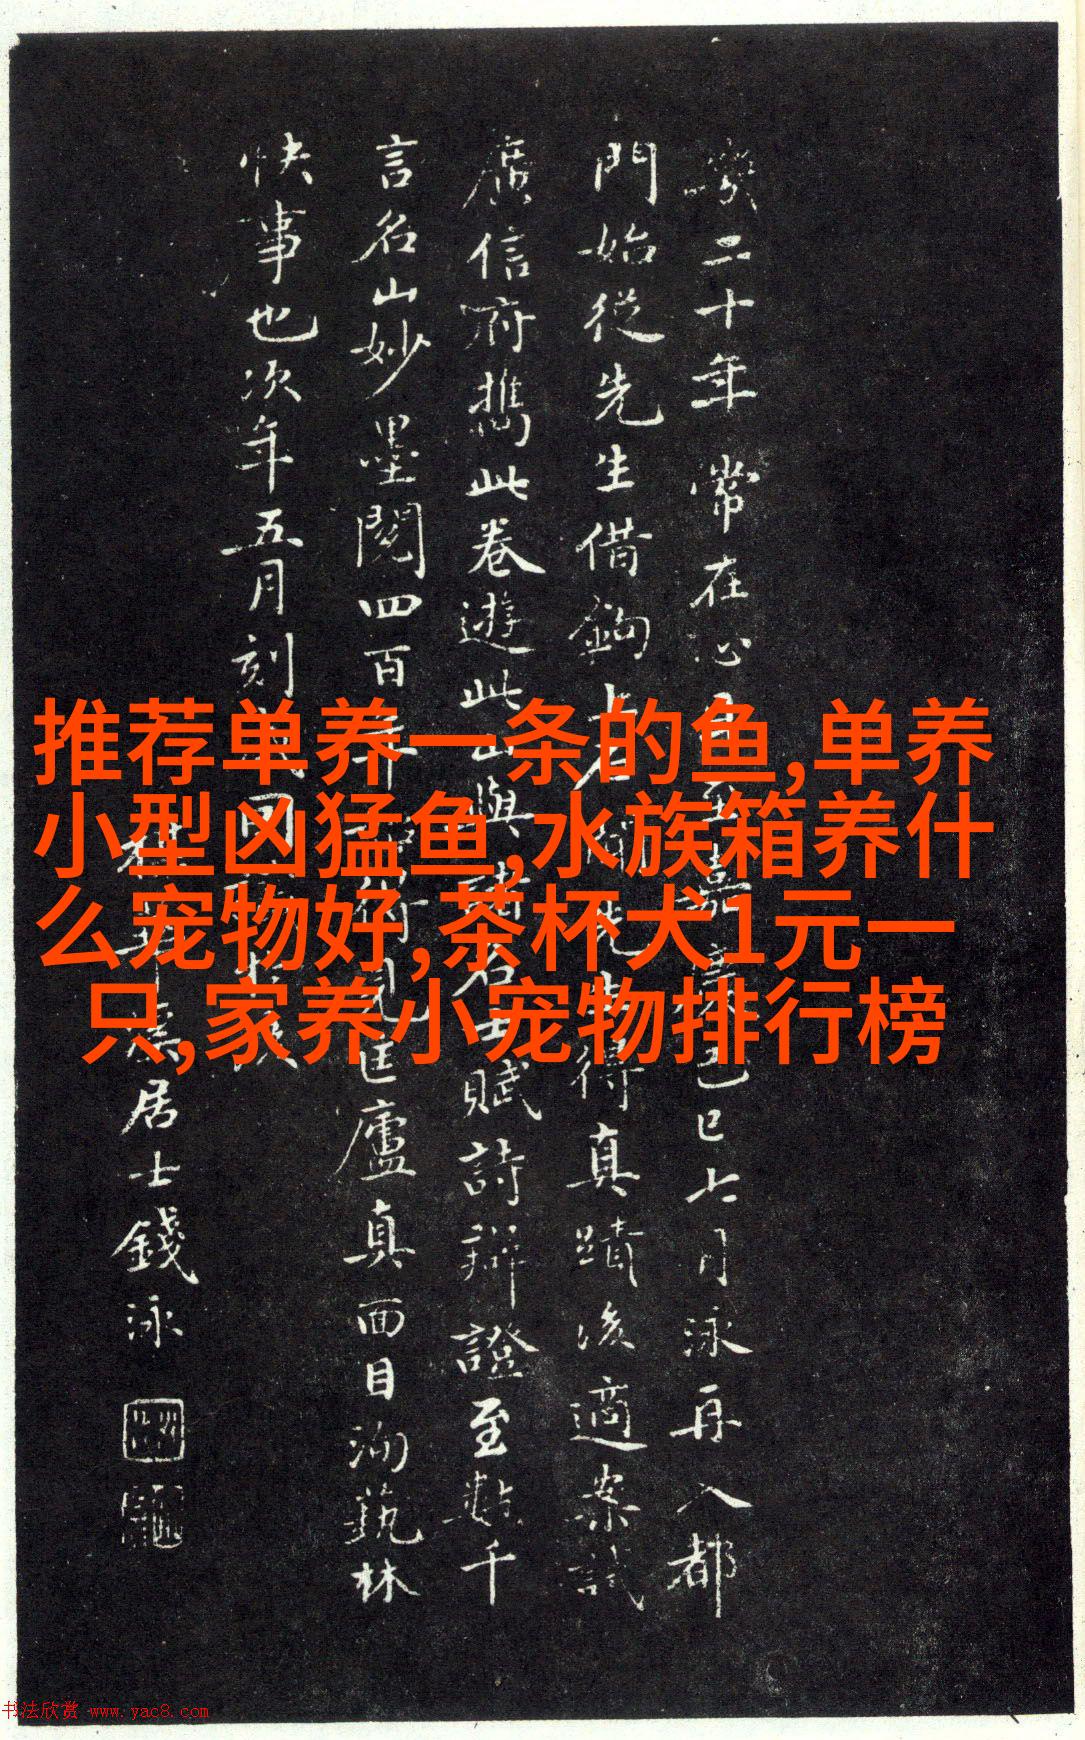 推荐单养一条的鱼,单养
小型凶猛鱼,水族箱养什
么宠物好,茶杯犬1元一
只,家养小宠物排行榜
二十年常在心
巳七月泳再入都
門始從先生借鈎
得真蹟後適案試
廣信府攜此卷遊此山與諸名士賦詩辯證至數千
言名山妙墨閱四百
匡廬真面目洵藝林
快事也次年五月刻
居士錢泳
书法欣赏 www.yac8.com